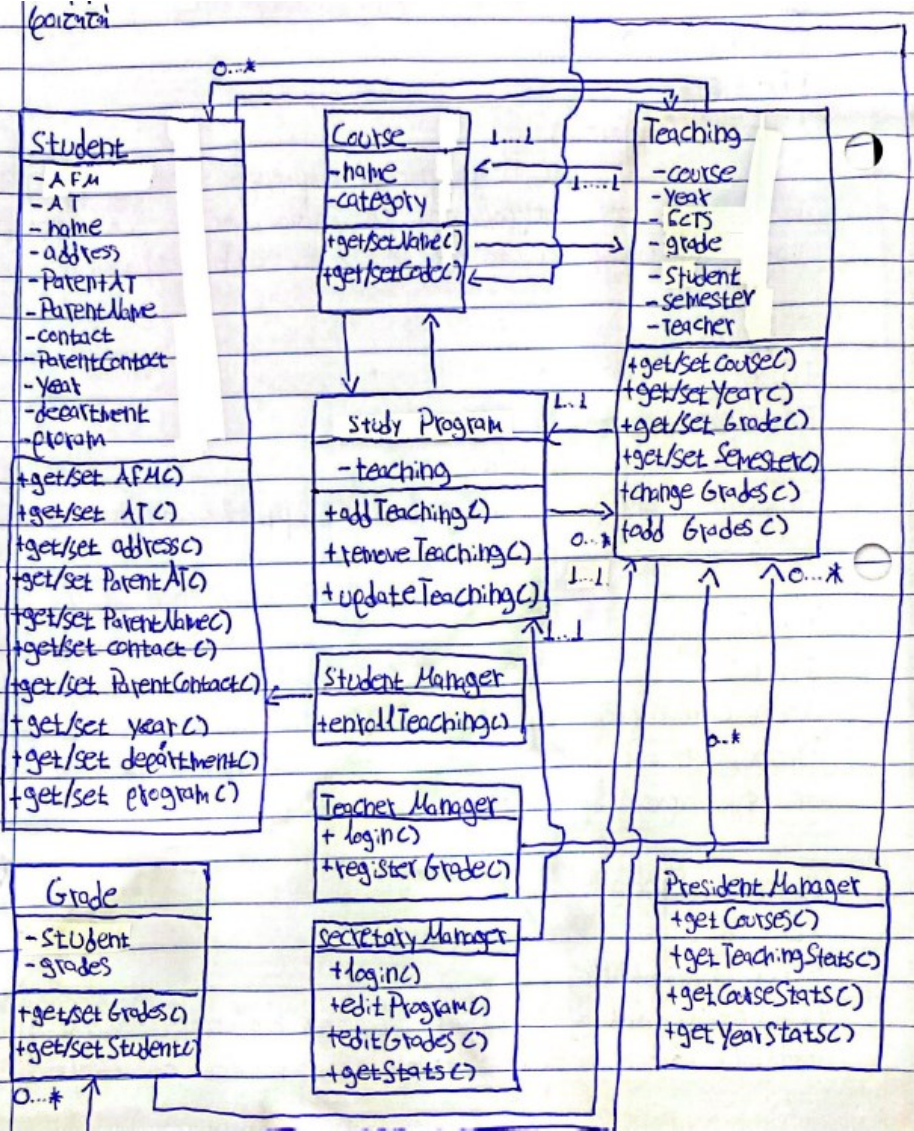 φοιτητή
0...*
Student
- AFM
- AT
- name
- address
- ParentAT
- ParentName
- contact
- ParentContact
- year
- department
- program
+get/set AFM()
+get/set AT()
+get/set address()
+get/set ParentAT()
+get/set ParentName()
+get/set contact()
+get/set ParentContact()
+get/set year()
+get/set department()
+get/set program()
Course
-name
-category
+get/setName()
+get/setCode()
1...1
1....1
Teaching
-course
-Year
-ECTS
-grade
-Student
-semester
-Teacher
+get/set course()
+get/set Year()
+get/set Grade()
+get/set Semester()
+change Grades()
+add Grades()
Study Program
-teaching
+addTeaching()
+removeTeaching()
+updateTeaching()
1..1
0...*
1...1
1...1
0...*
0..*
Student Manager
+enrollTeaching()
Teacher Manager
+ login()
+register Grade()
Secretary Manager
+login()
+editProgram()
+editGrades()
+getStats()
President Manager
+get Courses()
+get TeachingStats()
+getCourseStats()
+get YearStats()
Grade
-Student
-grades
+get/set Grades()
+get/set Student()
0...*